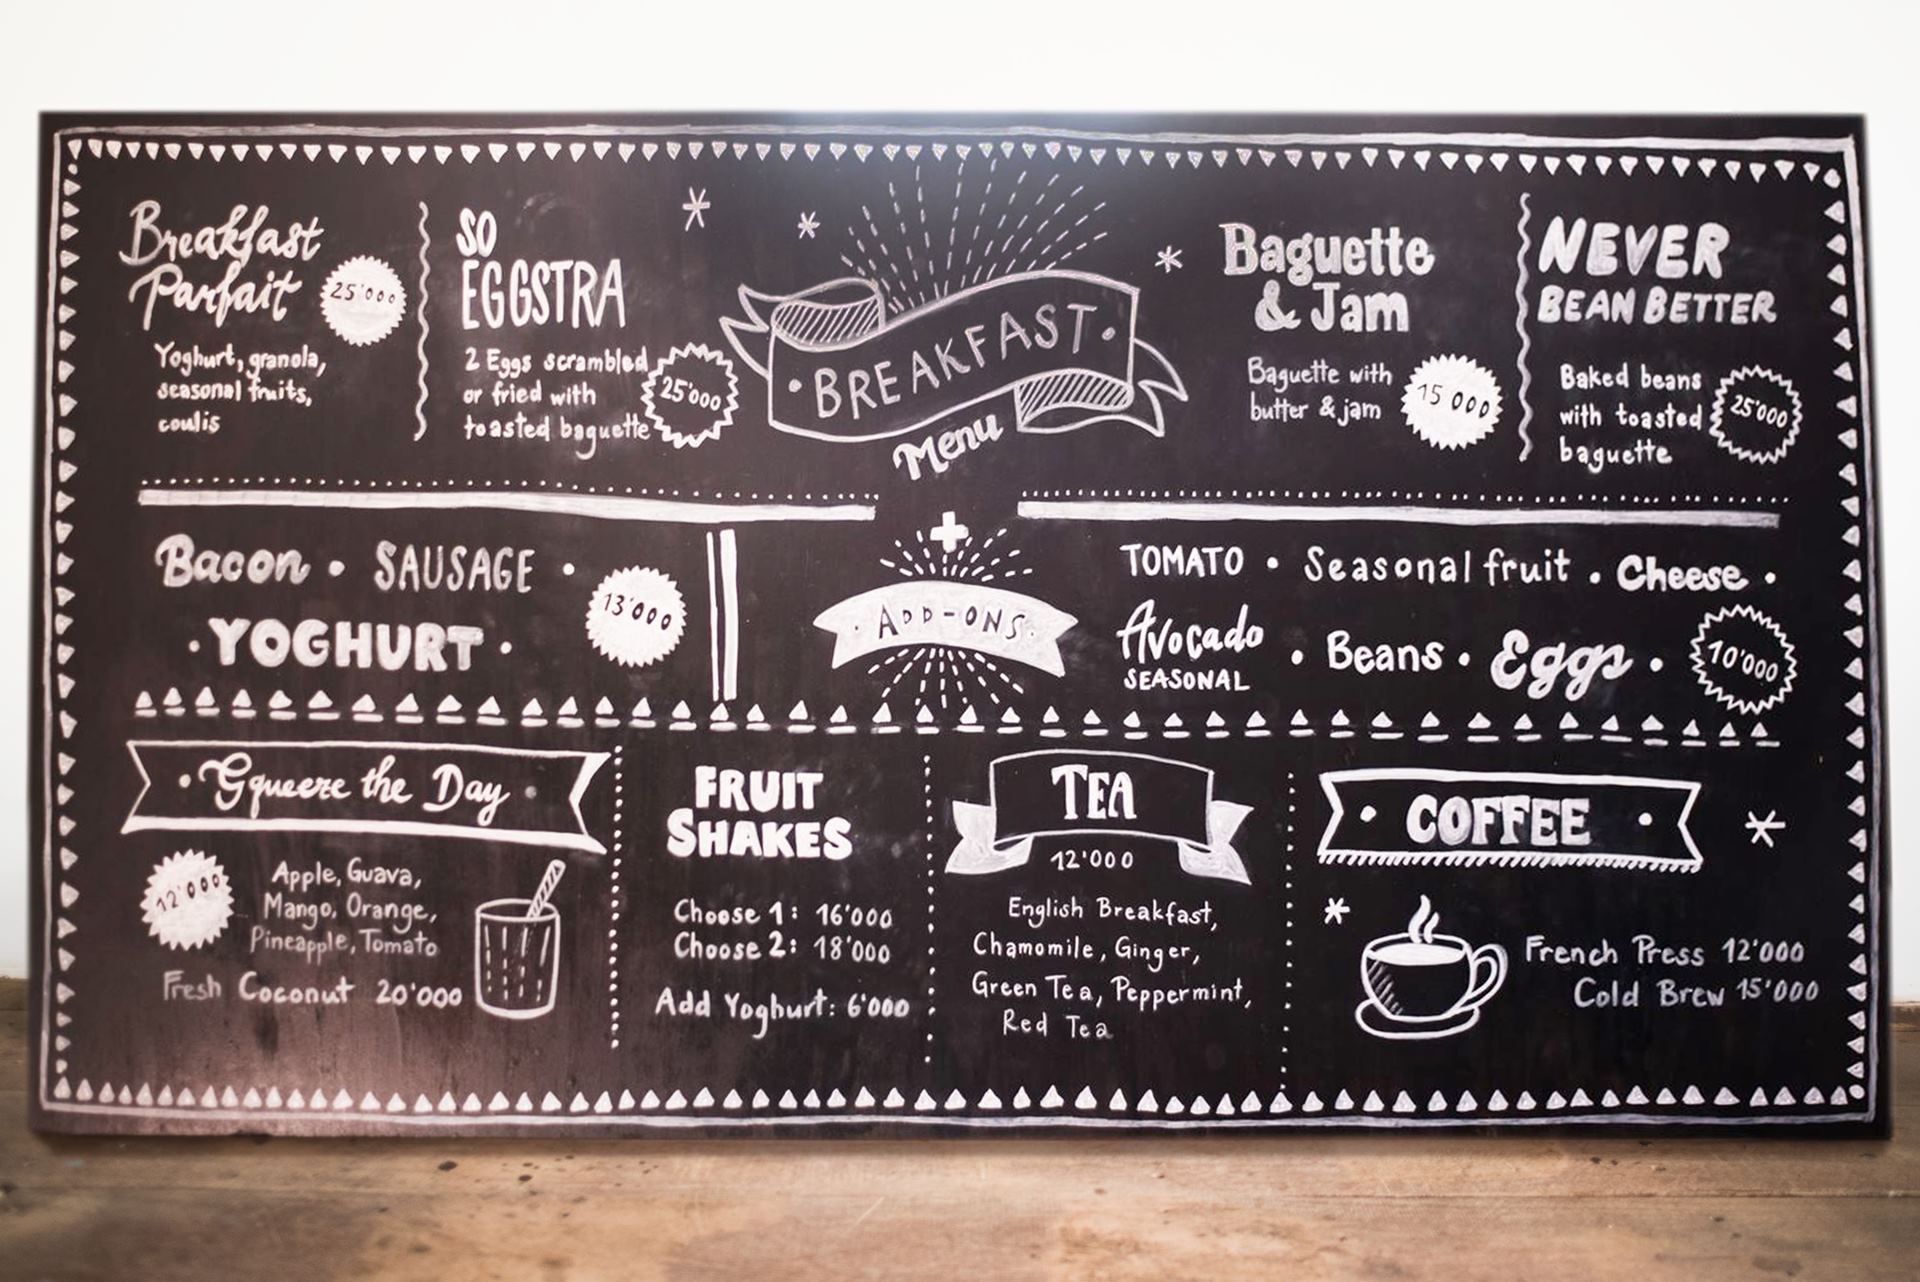 Breakfast
Parfait
25'000
Yoghurt, granola,
seasonal fruits,
coulis
SO
EGGSTRA
2 Eggs scrambled
or fried with
toasted baguette
25'000
· BREAKFAST ·
Menu
Baguette
& Jam
Baguette with
butter & jam
15 000
NEVER
BEAN BETTER
Baked beans
with toasted
baguette
25'000
Bacon · SAUSAGE ·
· YOGHURT ·
13'000
+
· ADD-ONS ·
TOMATO · Seasonal fruit · Cheese ·
Avocado
SEASONAL
· Beans · Eggs ·
10'000
· Squeeze the Day ·
12'000
Apple, Guava,
Mango, Orange,
Pineapple, Tomato
Fresh Coconut 20'000
FRUIT
SHAKES
Choose 1: 16'000
Choose 2: 18'000
Add Yoghurt: 6'000
TEA
12'000
English Breakfast,
Chamomile, Ginger,
Green Tea, Peppermint,
Red Tea
· COFFEE ·
French Press 12'000
Cold Brew 15'000